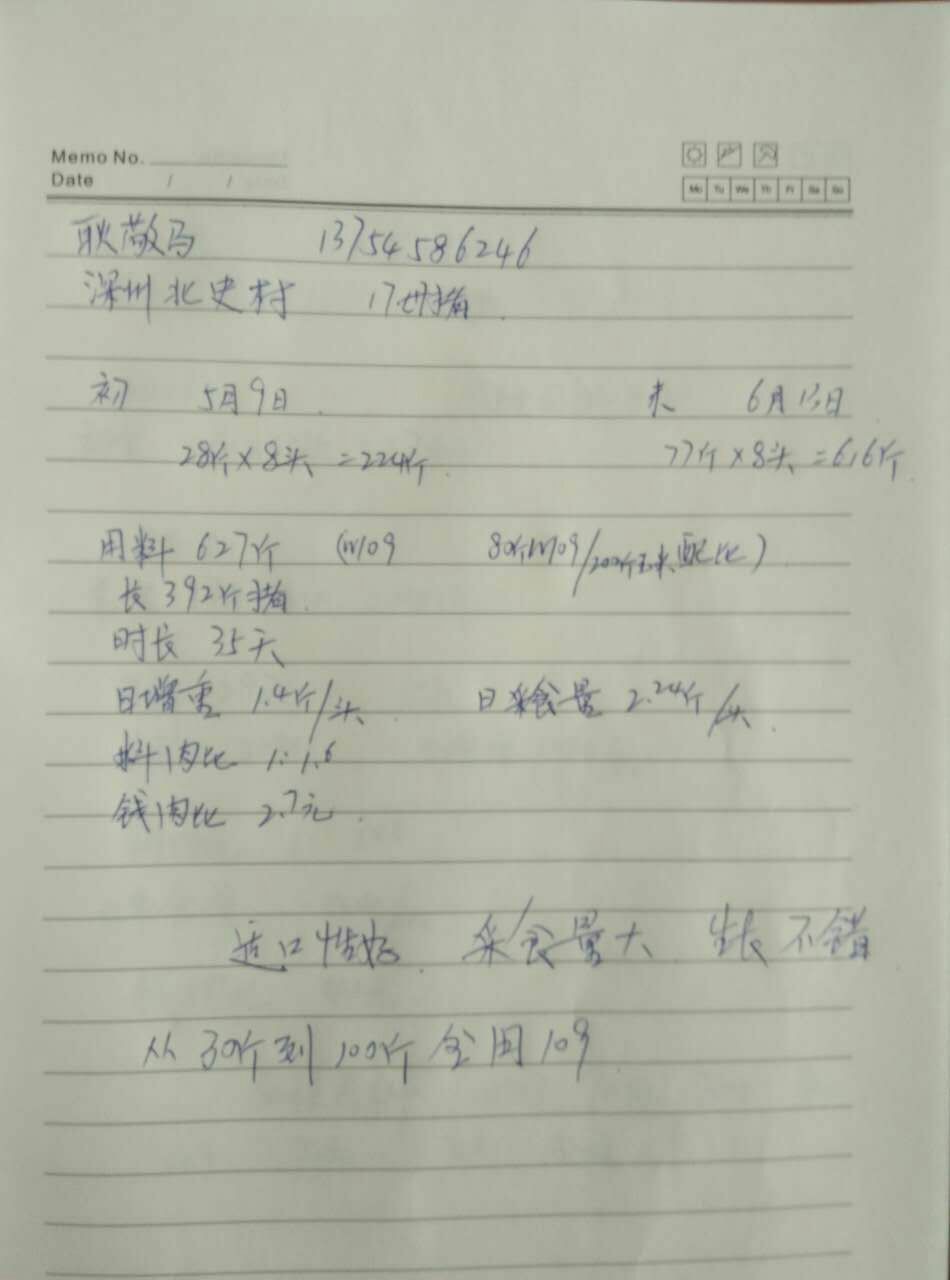 Memo No.
Date / /
Mo Tu We Th Fr Sa Su
耿敬马 13754586246
深州北史村 17母猪
初 5月9日 末 6月13日
28斤×8头=224斤 77斤×8头=616斤
用料 627斤 (M09 80斤M09/200斤玉米配比)
长392斤猪
时长 35天
日增重 1.4斤/头 日采食量 2.24斤/头
料肉比 1:1.6
钱肉比 2.7元
适口性好 采食量大 生长不错
从30斤到100斤全用109